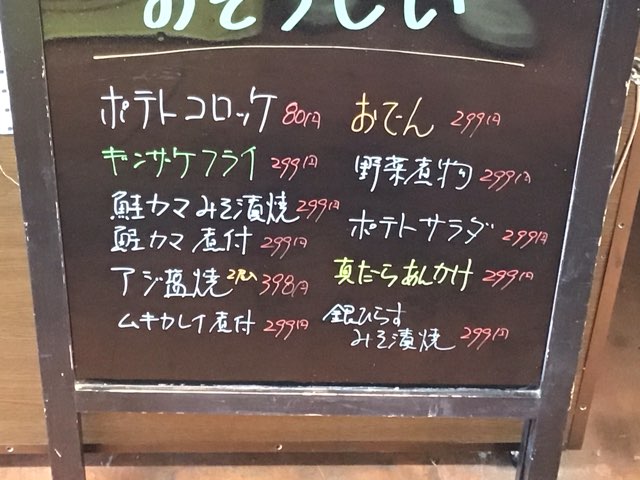 おそうざい
ポテトコロッケ 80円
ギンザケフライ 299円
鮭カマみそ漬焼 299円
鮭カマ煮付 299円
アジ塩焼 2尾入 398円
ムキカレイ煮付 299円
おでん 299円
野菜煮物 299円
ポテトサラダ 299円
真だらあんかけ 299円
銀ひらす
みそ漬焼 299円